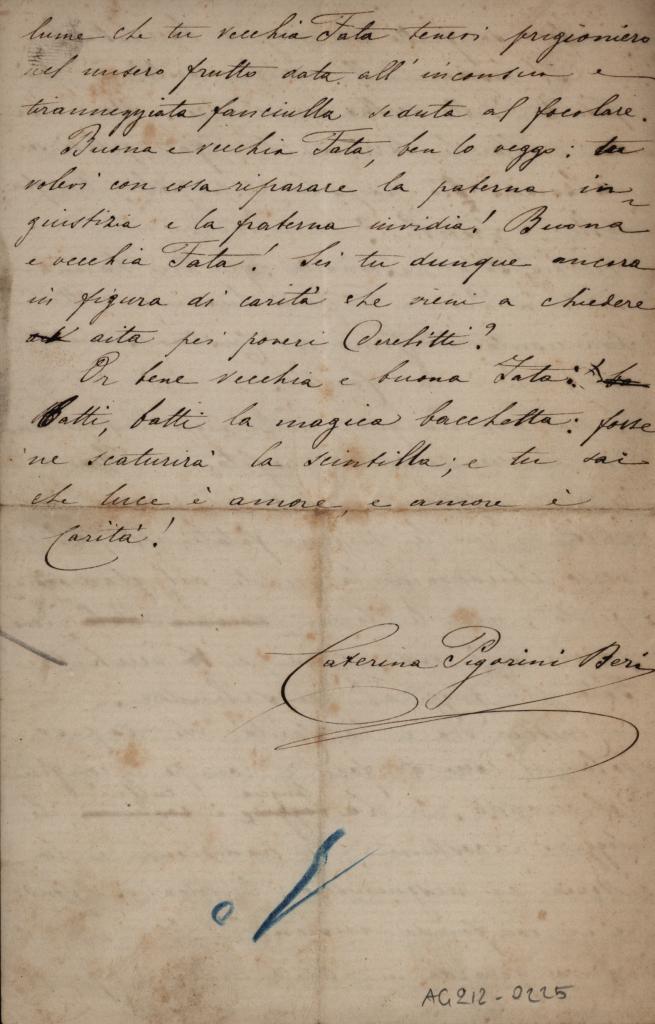 lume che tu vecchia Fata tenevi prigioniero
nel misero frutto data all' inconscia e
tiranneggiata fanciulla seduta al focolare.
Buona e vecchia Fata, ben lo veggo: tu
volevi con essa riparare la paterna in-
giustizia e la fraterna invidia! Buona
e vecchia Fata! Sei tu dunque ancora
in figura di carità che vieni a chiedere
aita pei poveri Derelitti?
Or bene vecchia e buona Fata:
Batti, batti la magica bacchetta: forse
ne scaturirà la scintilla; e tu sai
che luce è amore, e amore è
Carità!
Caterina Pigorini Beri
AG 212 - 0225